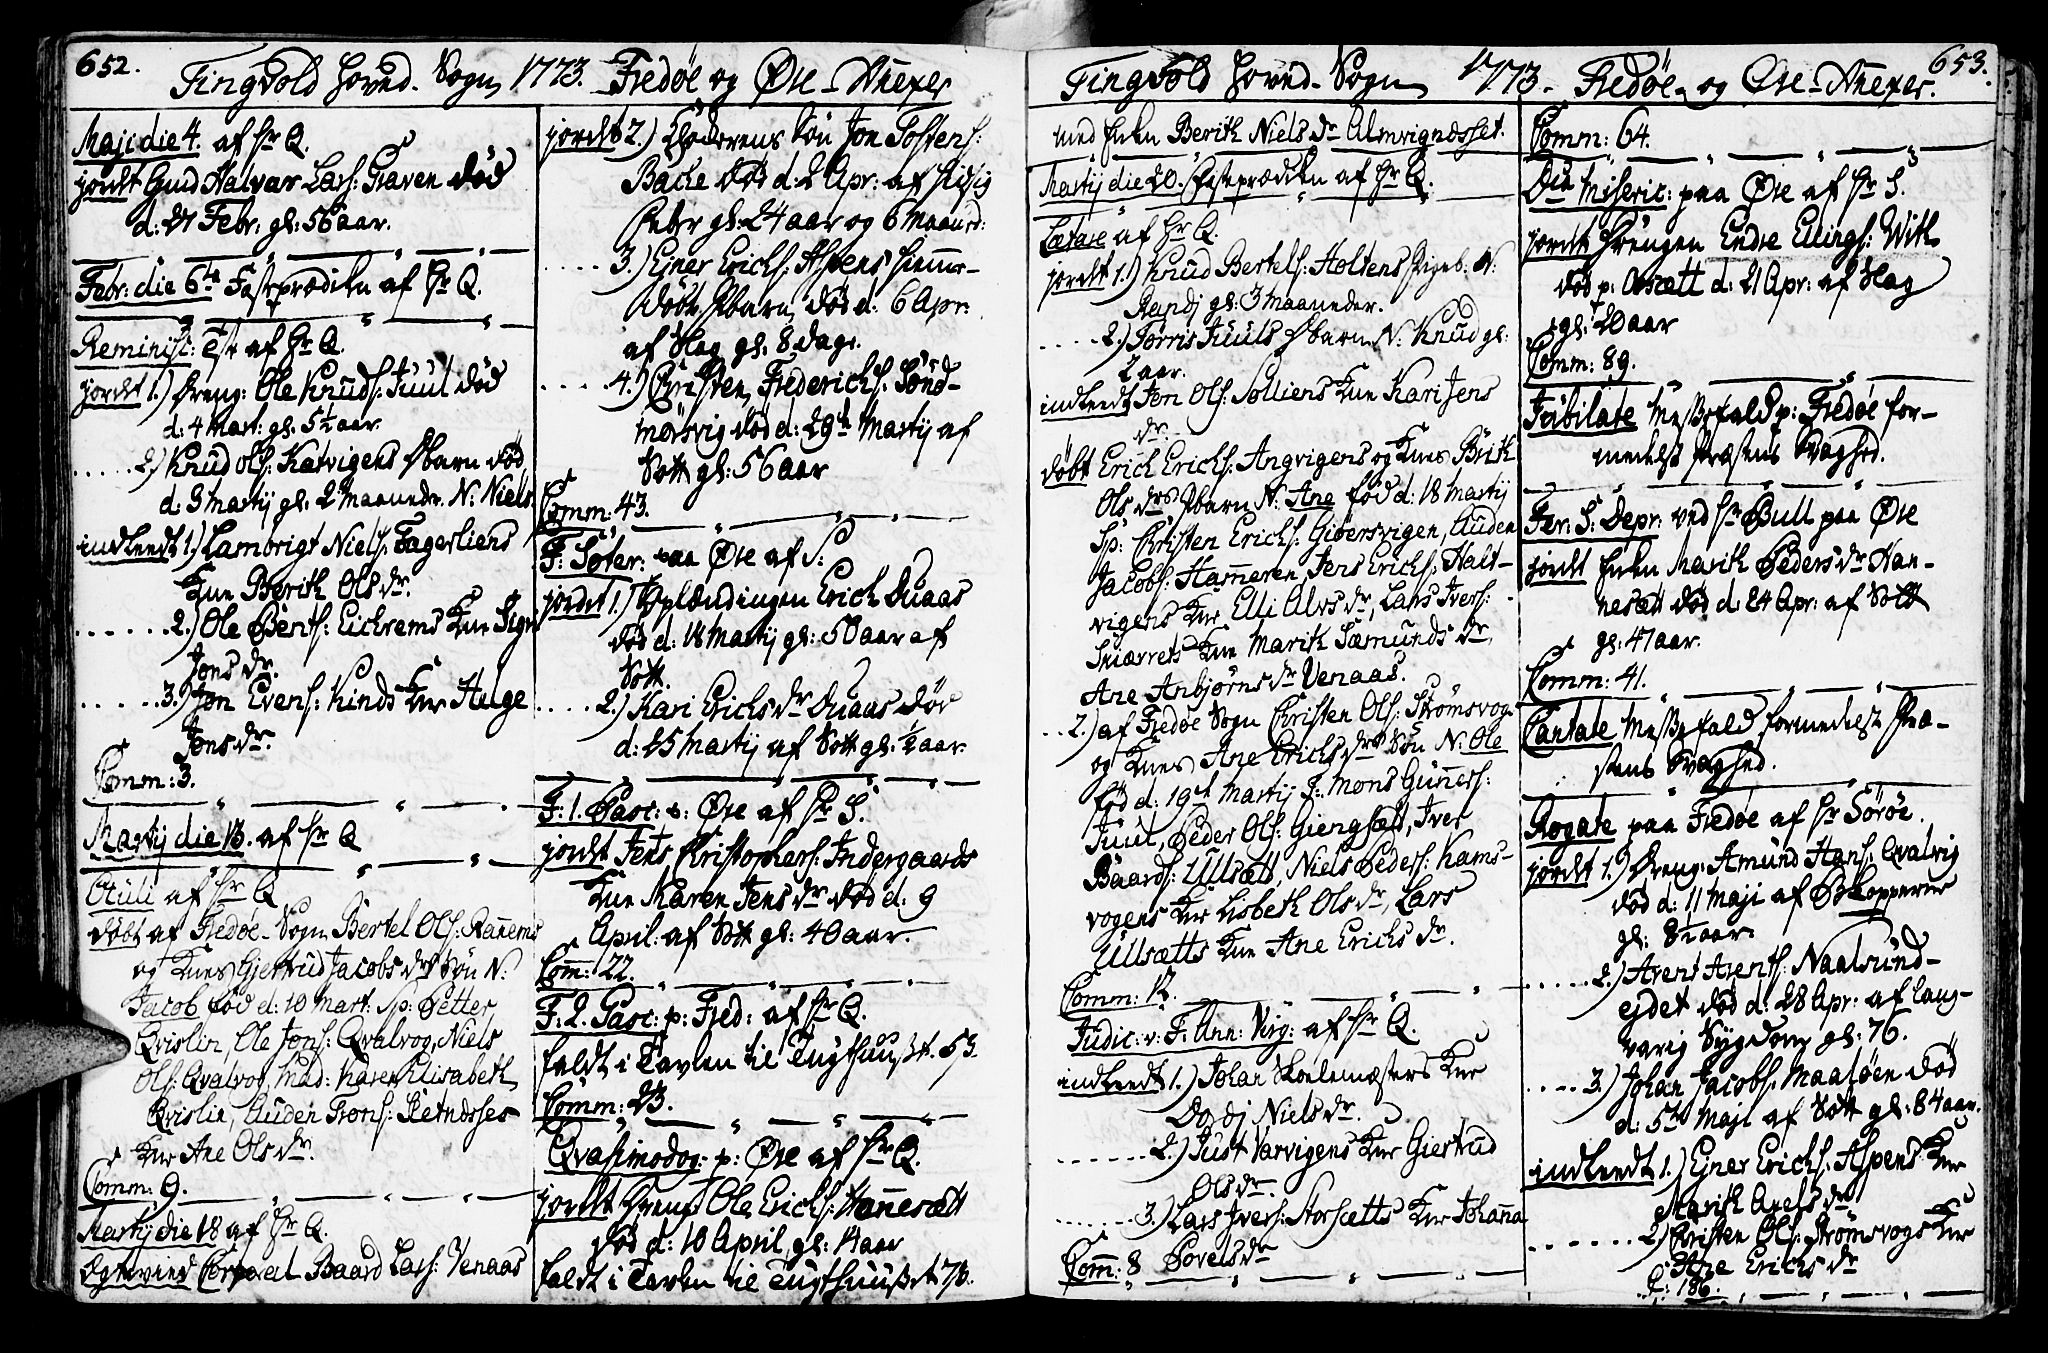 652.
Tingvold Hoved-Sogn 1773. Fredøe og Øre-Annexer
Maji die 4. af Hr Q.
jordt Gmd Halvar Lars: Graven død
d: 27 Febr: gl: 56 aar.
Febr: die 6te Fasteprædiken af Hr Q.
Reminisc: af Hr Q.
jordt 1.) Dreng: Ole Knuds: Juul død
d: 4 Mart: gl: 5½ aar.
2.) Knud Ols: Katvigens Dbarn død
d: 3 Martij gl: 2 Maaneder N: Niels
indleedt 1.) Lambrigt Niels: Fagerliens
Kne Berith Olsdr.
2.) Ole Bents: Eichrems Kne Sigr
Jonsdr.
3.) Jon Evens: Kinds Kne Helge
Jonsdr.
Comm: 3.
Martij die 13. af Hr Q
Oculi af Hr Q
døbt af Fredøe-Sogn Bertel Ols: Ranems
og Knes Giertrud Jacobsdrs Søn N:
Jacob fød d: 10 Mart: Sp: Petter
Qvislin, Ole Jons: Qvalvog, Niels
Ols: Qvalvog, Mad: Karen Elisabeth
Qvislin, Auden Trons: Reindsses
Kne Ane Olsdr.
Comm: 9.
Martij die 18 af Hr Q.
Corporal Baard Lars: Venaas
jordt 2.) Søn Jon Tostens:
Bache død d: 2 Apr: af hidsig
Feber gl: 24 aar og 6 Maaned:
3.) Ejner Erichs: Aspens hieme-
døbte Dbarn død d: 6 Apr:
af Slag gl: 8 dage.
4.) Christen Frederichs: Sønd-
mørsvig død d: 29de Martij af
Sott gl: 56 aar
Comm: 43.
F: Søter: paa Øre af S:
jordt 1.) Oplændingen Erich Duaas
død d: 18 Martij gl: 50 aar af
Sott.
2.) Kari Erichsdr Duaas død
d: 25 Martij af Sott gl: ½ aar.
F: 1. Pasc: Øre af Hr S.
jordt Jens Kristophers: Indergaards
Kne Karen Jensdr død d: 9
April: af Sott gl: 40 aar.
Com: 22.
F: 2. Pasc: p: Fred: af Hr Q.
faldt i Tavlen til Tugthuuset. 53.
Comm: 23.
Qvasimodog: p: Øre af Hr Q.
jordt Dreng Ole Erichs: Hannesætt
død d: 10 April, gl: 14 aar
faldt i Tavlen til Tugthuuset 76.
653.
Tingvold Hoved-Sogn 1773. Fredøe- og Øre-Annexer.
med Enken Berith Nielsdr Almvigndsset.
Martij die 20. Fasteprædiken af Hr Q.
Lætare af Hr Q.
jordt 1.) Knud Bertels: Holtens Pigeb: N:
Randj gl: 3 Maaneder.
2.) Torris Juuls Dbarn N: Knud gl:
2 aar.
indleedt Jon Ols: Solliens Kne Kari Jens
dr.
døbt Erich Erichs: Angvigens og Knes Brith
Olsdrs Pbarn N: Ane fød d: 18 Martij
Sp: Christen Erichs: Giøersvigen, Auden
Jacobs: Hameren, Jens Erichs: Halt-
vigens Kne Elli Alvsdr, Lars Ivers:
Kne Marith Sæmundsdr,
Ane Anbjørnsdr Venaas.
2.) af Fredøe Sogn Christen Ols: Strømsvog
og Knes Ane Erichsdrs Søn N: Ole
fød d: 19de Martij F: Mons Guners:
Juul, Peder Ols: Giengsæt, Iver
Baards: Ullsætt, Niels Peders: Kams-
vogens Kne Lisbeth Olsdr, Lars
Ullsætts Kne Ane Erichsdr.
Comm: 12.
Judic: v: F. Ann: Virg: af Hr Q.
indleedt 1.) Johan Skolemæsters Kne
Dordj Nielsdr.
2.) Just Varvigens Kne Giertrud
Olsdr.
3.) Lars Ivers: Storsætts Kne Johana
Povelsdr
Com: 8
Comm: 64.
Dca Miseric: paa Øre af Hr S.
jordt Drengen Endre Ellings: With
død p: d: 21 Apr: af Slag
gl: 20 aar
Comm: 89.
Jubilate Messefald p: Fredøe for-
medelst Præstens Svaghed.
Fer: S: Depr: ved Hr Bull paa Øre
jordt Enken Marith Pedersdr Han-
nesæt død d: 24 Apr: af Sott
gl: 47 aar.
Comm: 41.
Cantate Messefald formedelst Præ-
stens Svaghed.
Rogate paa Fredøe af Hr Sørøe.
jordt 1.) Dreng: Amund Hans: Qvalvig
død d: 11 Maji af Børkopperne
gl: 8½ aar
2.) Arent Arents: Naalsund-
ejdet død d: 28 Apr: af lang-
varig Sygdom gl: 76.
3.) Johan Jacobs: Maaløen død
d: 5te Maji af Sott gl: 84 aar.
indleedt 1.) Ejner Erichs: Aspens Kne
Marith Axelsdr
2.) Christen Ols: Strømsvogs Kne
Ane Erichsdr
C: 186.